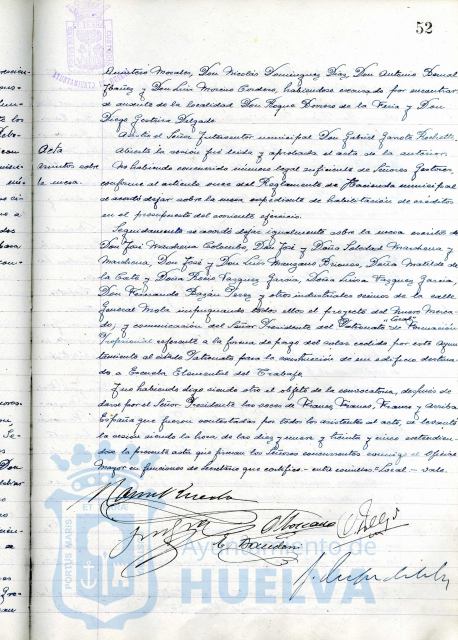 52
Quintero Morales, Don Nicolás Dominguez Diaz, Don Antonio Doval
Ibañez y Don Luis Moreno Cordero, habiéndose excusado por encontrar-
se ausente de la localidad Don Roque Donoro de la Feria y Don
Diego Delgado.
Asiste el Señor Interventor municipal Don Gabriel
Acta
Abierta la sesión fué leida y aprobada el acta de la anterior.
Asuntos sobre
la mesa.
No habiendo concurrido número legal suficiente de Señores Gestores,
conforme al articulo once del Reglamento de Hacienda municipal
se acordó dejar sobre la mesa expediente de habilitación de créditos
en el presupuesto del corriente ejercicio.
Seguidamente se acordó dejar igualmente sobre la mesa escrito de
Don José Marchena Colombo, Don José y Doña Soledad Marchena y
Marchena, Don José y Don Luis Manzano Briones, Doña Matilde de
la Corte y Doña Vazquez Garcia, Doña Luisa Vazquez Garcia,
Don Fernando Bazán Perez y otros industriales vecinos de la calle
General Mola impugnando todos ellos el proyecto del Nuevo Merca-
do, y comunicación del Señor Presidente del Patronato de Formación
Profesional referente a la forma de pago del solar cedido por este Ayun-
tamiento al citado Patronato para la construcción de un edificio destina-
do a Escuela Elemental del Trabajo.
Y no habiendo sido otro el objeto de la convocatoria, después de
darse por el Señor Presidente las voces de Franco, Franco, Franco y Arriba
España que fueron contestadas por todos los asistentes al acto, se levantó
la sesión siendo la hora de las diez y nueve y treinta y cinco extendien-
dose la presente acta que firman los Señores concurrentes conmigo el Oficial
Mayor en funciones de Secretario que certifico. - entre comillas - Local - vale.
Ayuntamiento de
HUELVA
PORTUS MARIS